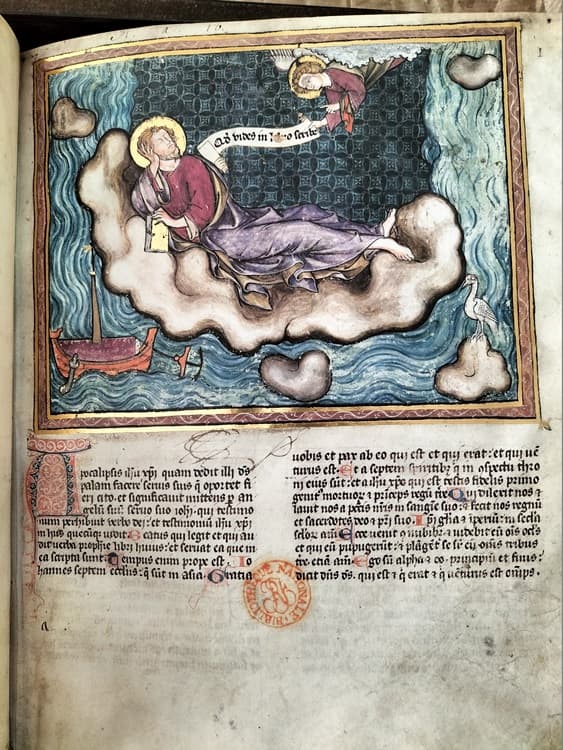 Qd vides in scribe
Apocalipsis ihu xpi quam dedit illi ds
palam facere seruis suis q̄ oportet fi
eri cito. et significauit mittens p an
gelū suū seruo suo iohi. qui testimo
nium perhibuit verbo dei: et testimoniū ihu xpi
in hiis quecūqȝ uidit. Beatus qui legit et qui au
dit uerba prophetie libri huius: et seruat ea que in
ea scripta sunt. Tempus enim prope est. Io
hannes septem ecclīis: q̄ sūt in asia. Gratia
uobis et pax ab eo qui est et qui erat: et qui uē
turus est. Et a septem spiritibȝ q̄ in ospectu thro
ni eius sūt: et a ihu xpo qui est testis fidelis primo
genitus mortuoꝝ et prīceps regū tre. Qui dilexit nos et
lauit nos a pctis nris in sangīe suo: et fecit nos regnū
et sacerdotes deo et pri suo. gla et iperiū in secla
sclor am. Ecce uenit nubibȝ et uidebit eū ois ocls
et qui eū pupugerūt. et plāget se sr eū oms tribus
tre. etiā am. Ego sū alpha et o. principiū et finis.
dicit dns ds. qui est et q̄ erat et q̄ uenturus est omps.
BIBLIOTHEQUE NATIONALE
a